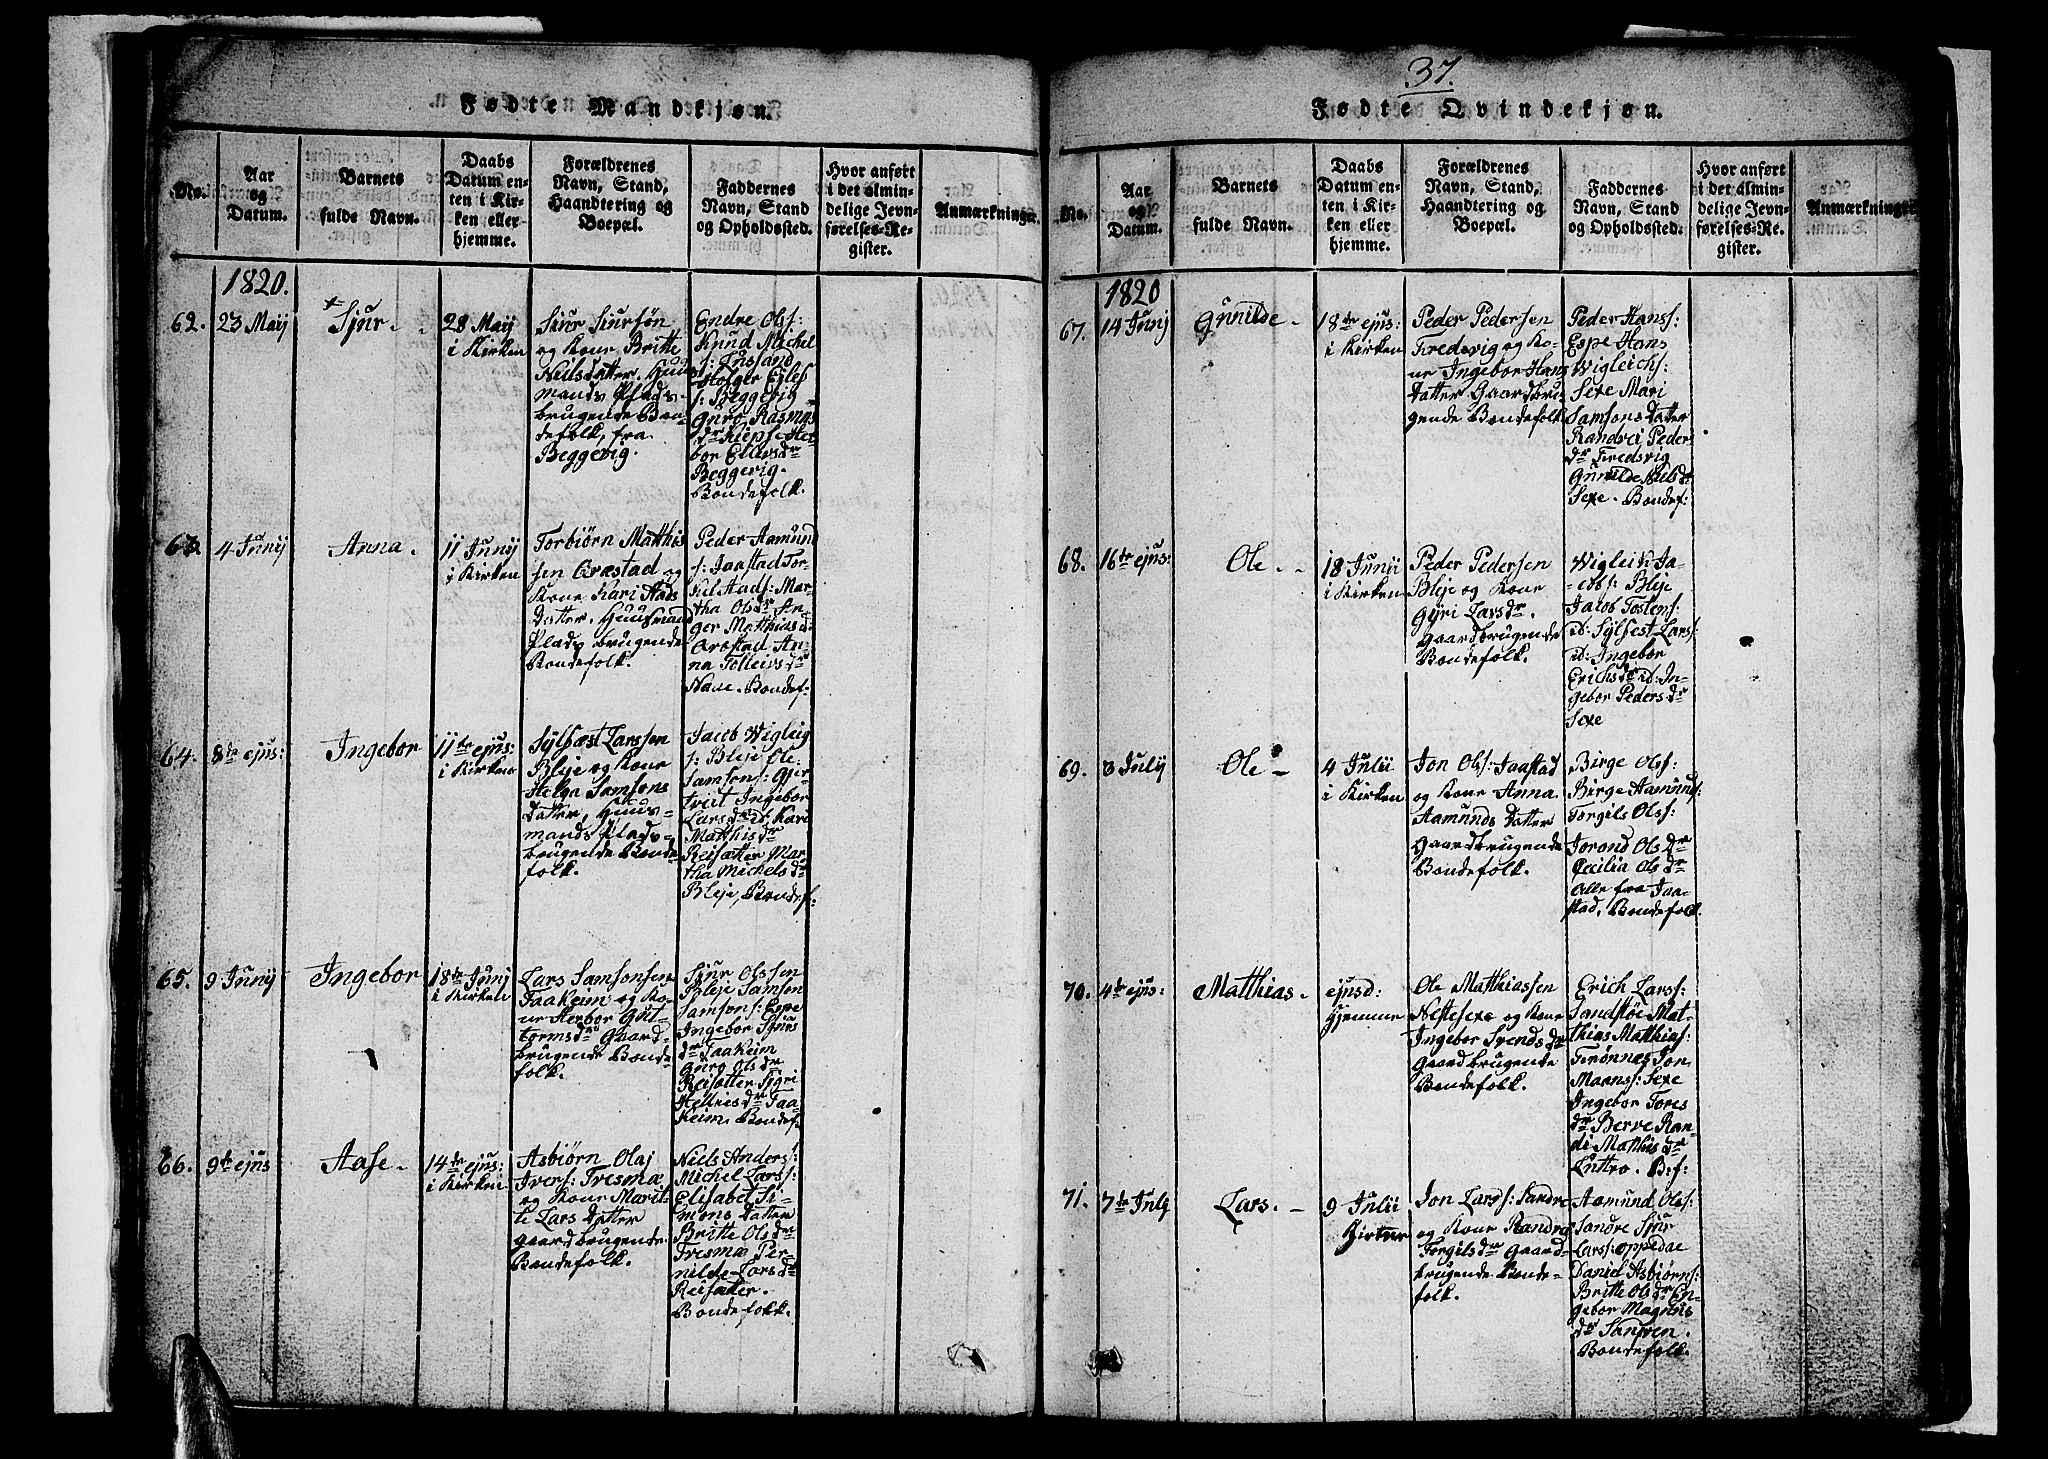 37.
Fødte Mandkjøn.
No.
Aar
og
Datum.
Barnets
fulde Navn.
Daabs
Datum en-
ten i Kir-
ken eller
hjemme.
Forældrenes
Navn, Stand,
Haandtering og
Boepæl.
Faddernes
Navn, Stand
og Opholdssted.
Hvor anført
i det almin-
delige Jevn-
førelses-Re-
gister.
Anmærkninger
1820.
62.
23 Maij
Sjur
28 Maij
i Kirken
Siur Siursøn
og Kone Britte
Nielsdatter. Huus
mands Plads-
brugende Bon-
defolk, fra
Beggevig.
Endre Ols:
Knud Michel
s: Tusland
Holger Ellef
s: Beggevig
Guro Rasmus
dr Kiepse
bor Ellefsdr
Beggevig.
Bondefolk.
63.
4 Junij
Anna.
11 Junij
i Kirken
Torbiørn Matthis
sen Aræstad og
Kone Kari Aads
Datter. Huusmand
Plads brugende
Bondefolk.
Peder Aamund
s: Jaastad Tor-
kil Aads: Mar-
tha Olsdr In-
ger Matthiasd:
Arestad An-
na Tolleivsdr
Naae. Bondef:
64.
8de ejus:
Ingebor
11te ejus:
i Kirken
Sylfæst Larssen
Bleje og Kone
Helga Samsons
Datter, Huus-
mands Plads-
brugende Bonde
folk.
Jacob Wigleig
s: Bleje Ole
Samsons: Gjer-
tveit Ingebor
Larsdr id: Kari
Matthisdr
Reisæter Mar-
tha Michelsdr
Bleje, Bondef:
65.
9 Junij
Ingebor
18de Junj
i Kirken
Lars Samsonsen
Jaakeim og Ko-
ne Herbor Gut-
tormsdr Gaard-
brugende Bonde
folk.
Sjur Olssen
Bleje Samson
Samsons: Espe
Ingebor Sjurs
dr Jaakeim
Guro Olsdr
Reisæter Sygri
Helliesdr Jaa-
keim. Bondef:
66.
9de ejus
Aase.
14de ejus:
i Kirken
Asbiørn Olaj
Ivers: Tresmæ
og Kone Marit-
te Lars Datter
gaardbrugende
Bondefolk.
Niels Anders:
Michel Lars:
Elisabet Si-
mons Datter
Britte Olsdr
Tresmæ Per-
nilde Larsdr
Reisæter.
Bondefolk.
Fødte Qvindekjøn.
No.
Aar
og
Datum.
Barnets
fulde Navn.
Daabs
Datum en-
ten i Kir-
ken eller
hjemme.
Forældrenes
Navn, Stand,
Haandtering og
Boepæl.
Faddernes
Navn, Stand
og Opholdssted.
Hvor anført
i det almin-
delige Jevn-
førelses-Re-
gister.
Anmærkninger
1820
67.
14 Junj
Gunilde
18de ejus:
i Kirken
Peder Pedersen
Fredsvig og Ko-
ne Ingebor Hans
Datter Gaardbru
gende Bondefolk
Peder Hans:
Espe Hans
Wigleichs:
Sexe Mari
Samsons Datter
Randvei Peders
dr Fredsvig
Gunilde Nielsdr
Sexe. Bondef:
68.
16de ejus:
Ole
18 Junii
i Kirken
Peder Pedersen
Bleje og Kone
Gyri Larsdr
Gaardbrugende
Bondefolk.
Wigleik Ja-
cobs: Bleje
Jacob Tostens:
id: Sylfest Lars:
id: Ingebor
Erichsdr id: In-
gebor Pedersdr
Sexe
69.
3 Julij
Ole
4 Julii
i Kirken
Jon Ols: Jaastad
og Kone Anna
Aamunds Datter
Gaardbrugende
Bondefolk.
Birge Ols:
Birge Aamunds:
Torgils Ols:
Jorond Olsdr
Cecilia Olsdr
Alle fra Jaa-
stad, Bondefolk.
70.
4de ejus:
Matthias
ejusd:
Hjemme
Ole Matthiassen
Nestesexe og Kone
Ingebor Svendsdr
Gaardbrugende
Bondefolk.
Erich Larss:
Sandstøe Mat-
thias Matthias:
Trønnæs Jon
Maans: Sexe
Ingebor Tores
dr Berve Ran-
di Matthisdr
Luttro. B:f:
71.
7de July
Lars.
9 Julii
Kirken
Jon Larss: Sandre
og Kone Randve
Torgilsdr Gaard-
brugende Bonde-
folk.
Aamund Ols:
Sandre Sjur
Larss: Oppedae
Daniel Asbiørns:
Britte Olsdr In-
gebor Magnus
dr Sandven.
Bondefolk.